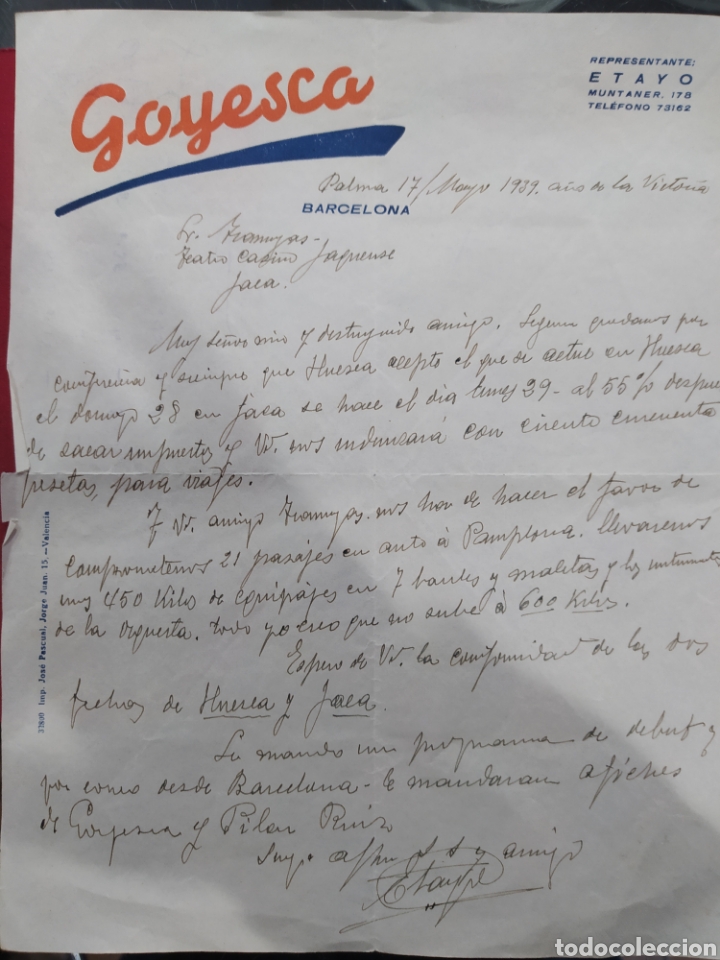 Goyesca
REPRESENTANTE:
ETAYO
MUNTANER, 178
TELÉFONO 73162
BARCELONA
Palma 17/Mayo 1939. año de la Victoria
Sr.
Teatro Casino Jaquense
Jaca.
Muy señor mio y distinguido amigo. Segun quedamos por
conferencia y siempre que Huesca acepte el que se actue en Huesca
el domingo 28 en Jaca se hace el dia lunes 29 - al 55% despues
de sacar impuestos y Vd. nos indemnizará con ciento cincuenta
pesetas, para viajes.
Y Vd. amigo nos ha de hacer el favor de
comprometernos 21 pasajes en auto á Pamplona. llevaremos
unos 450 Kilos de equipajes en 7 baules y maletas y los instrumentos
de la orquesta. todo yo creo que no sube á 600 Kilos.
Espero de Vd. la conformidad de las dos
fechas de Huesca y Jaca.
Le mando un programa de debut y
por correo desde Barcelona - le mandaran afiches
de Goyesca y Pilar Ruiz
Suyo afmo s s y amigo
Etayo
32800 Imp. José Pascual, Jorge Juan, 15.—Valencia
todocoleccion